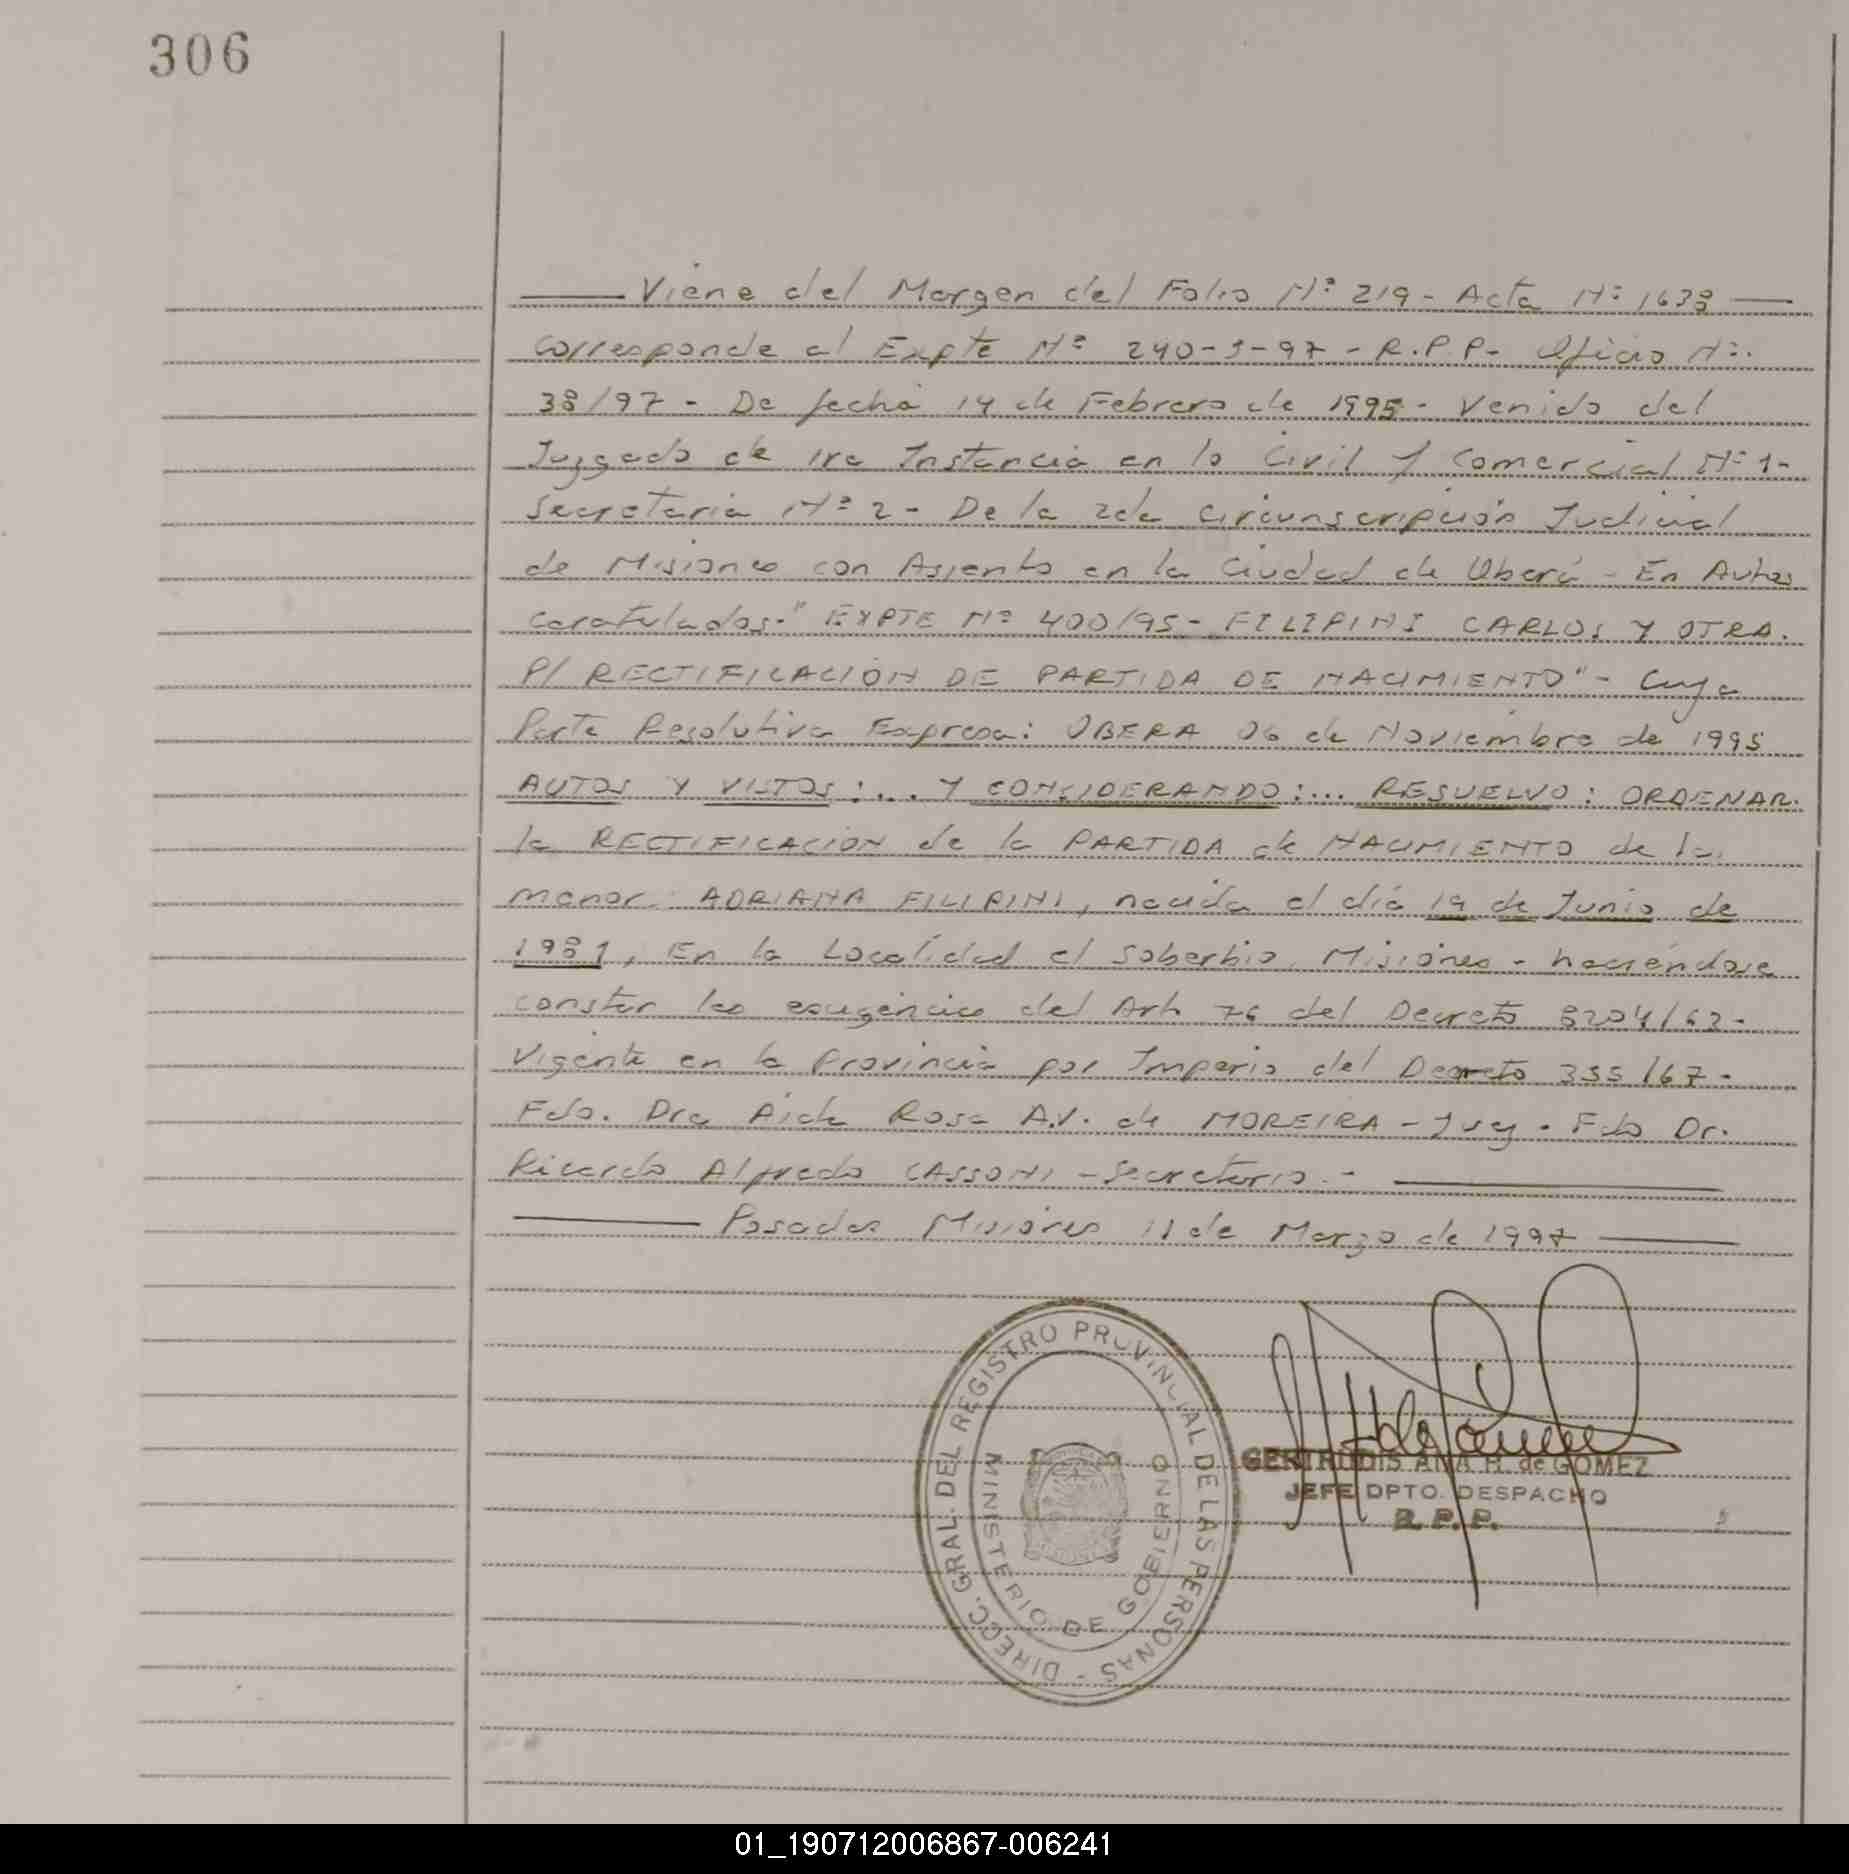 306
Viene del Margen del Folio Nº 219 - Acta Nº 1638
Corresponde al Expte Nº 240-J-97 - R.P.P- Oficio Nº.
38/97 - De fecha 14 de Febrero de 1995 - Venido del
Juzgado de 1ra Instancia en lo Civil y Comercial Nº 1-
Secretaria Nº 2 - De la 2da Circunscripción Judicial
de Misiones con Asiento en la Ciudad de Oberá - En Autos
Caratulados-" EXPTE Nº 400/95 - FILIPINI CARLOS Y OTRA.
P/ RECTIFICACIÓN DE PARTIDA DE NACIMIENTO" - Cuya
Parte Resolutiva Expresa: OBERA 06 de Noviembre de 1995
AUTOS Y VISTOS:... Y CONSIDERANDO:... RESUELVO: ORDENAR.
la RECTIFICACIÓN de la PARTIDA de NACIMIENTO de la
menor. ADRIANA FILIPINI, nacida el día 19 de Junio de
1981, En la Localidad el Soberbio, Misiones - haciéndose
constar las exigencias del Art 76 del Decreto 8204/63-
Vigente en la Provincia por Imperio del Decreto 355/67-
Fdo. Dra Aida Rosa A.V. de MOREIRA - Juez. Fdo Dr.
Ricardo Alfredo CASSONI - Secretario.-
Posadas Misiones 11 de Marzo de 1997
DIRECC. GRAL. DEL REGISTRO PROVINCIAL DE LAS PERSONAS -
MINISTERIO DE GOBIERNO
GERTRUDIS ANA H. de GOMEZ
JEFE DPTO. DESPACHO
R. P. P.
01_190712006867-006241